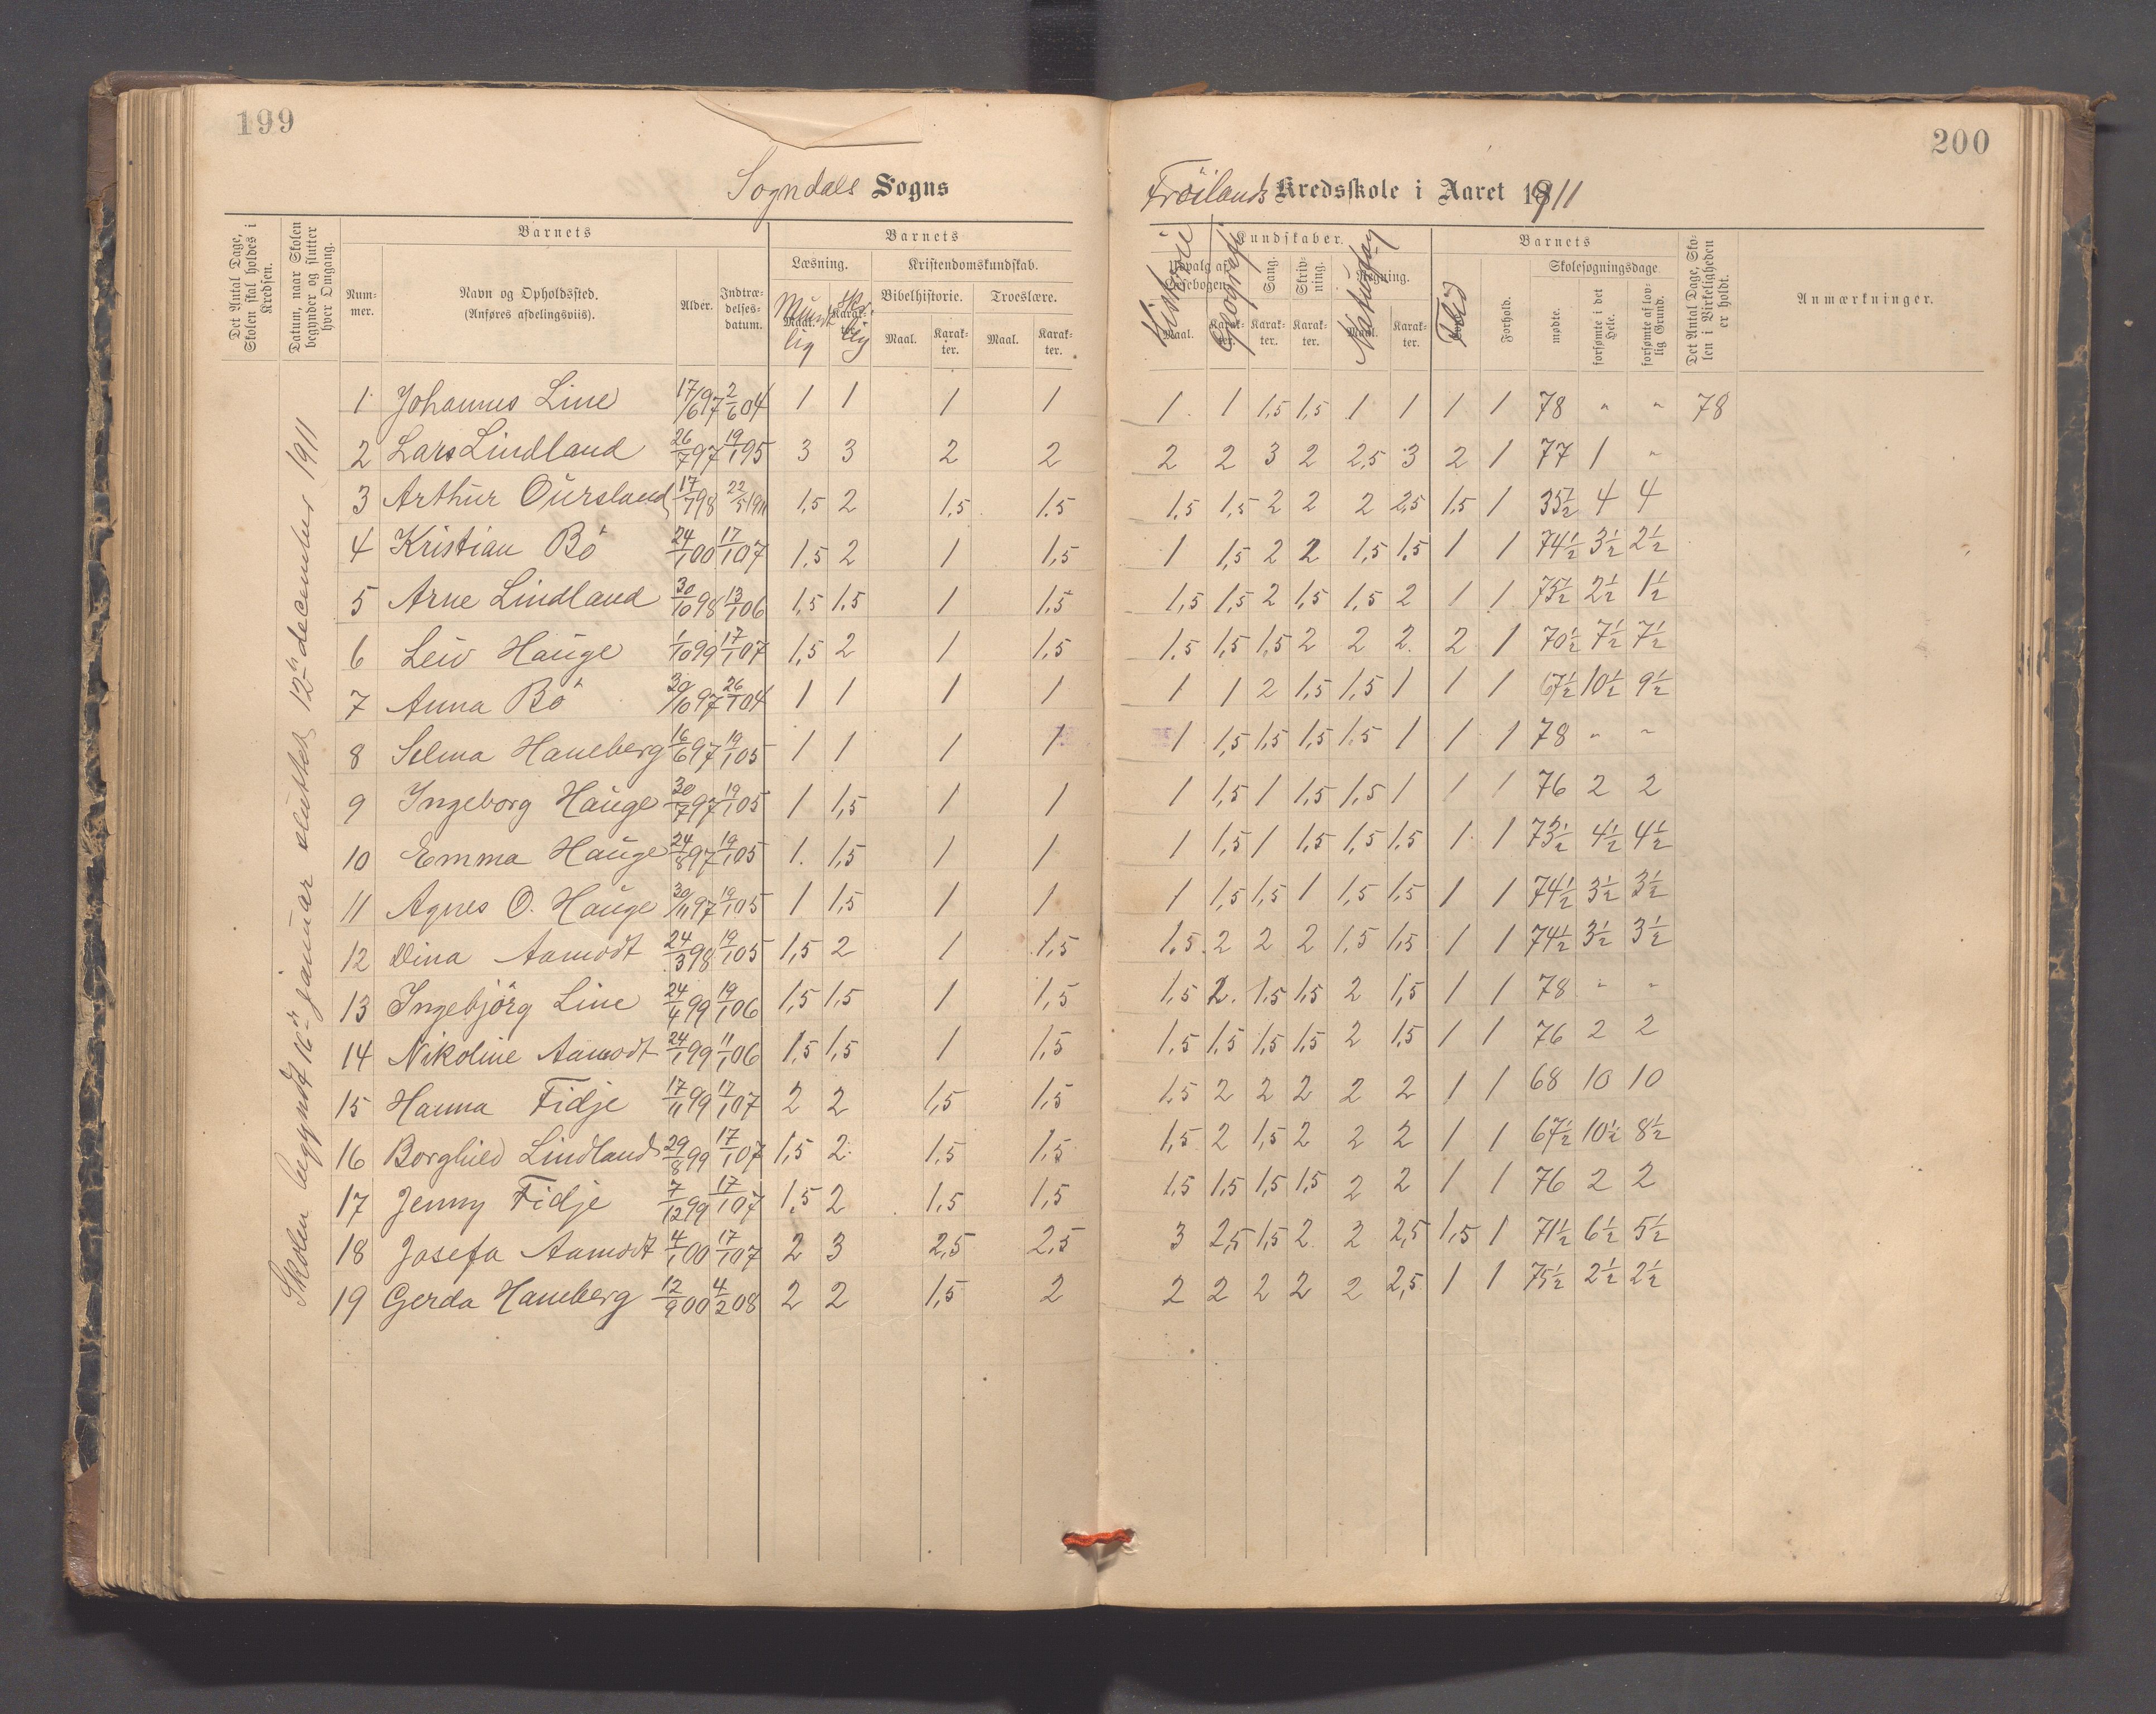 199
200
Sogndals Sogns
Fröilands Kredsskole i Aaret 1911
Det Antal Dage, Skolen skal holdes i Kredsen.
Datum, naar Skolen begynder og slutter hver Omgang.
Barnets
Num-mer.
Navn og Opholdssted.
(Anføres afdelingsviis).
Alder.
Indtræ-delses-datum.
Barnets
Læsning.
Maal. Karak-ter.
Mundtlig
Kristendomskundskab.
Bibelhistorie.
Troeslære.
Maal. Karak-ter. Maal. Karak-ter.
Kundskaber.
Udvalg af Læsebogen.
Historie
Geografi
Sang.
Skriv-ning.
Regning.
Maal. Karak-ter. Karak-ter. Karak-ter. Maal. Karak-ter.
Barnets
Flid
Forhold.
Skolesøgningsdage
mødte.
forsømte i det Hele.
forsømte af lov-lig Grund.
Det Antal Dage, Sko-len i Virkeligheden er holdt.
Anmærkninger.
Skolen begyndt 16de januar sluttet 12te december 1911
1 Johannes Line 17/6 97 2/6 04 1 1 1 1 1 1 1,5 1,5 1 1 1 1 78 " " 78
2 Lars Lindland 26/7 97 19/1 95 3 3 2 2 2 2 3 2 2,5 3 2 1 77 1 "
3 Arthur Oursland 17/7 98 22/5 1911 1,5 2 1,5 1,5 1,5 1,5 2 2 2 2,5 1,5 1 35½ 4 4
4 Kristian Bö 24/1 00 17/1 07 1,5 2 1 1,5 1 1,5 2 2 1,5 1,5 1 1 74½ 3½ 2½
5 Arne Lindland 30/10 98 13/1 06 1,5 1,5 1 1,5 1,5 1,5 2 1,5 1,5 2 1 1 75½ 2½ 1½
6 Leiv Hauge 1/10 99 17/1 07 1,5 2 1 1,5 1,5 1,5 1,5 2 2 2 2 1 70½ 7½ 7½
7 Anna Bö 30/10 97 26/1 04 1 1 1 1 1 1 2 1,5 1,5 1 1 1 67½ 10½ 9½
8 Selma Haneberg 16/6 97 19/1 05 1 1 1 1 1 1,5 1,5 1,5 1,5 1 1 1 78 " "
9 Ingeborg Hauge 30/7 97 19/1 05 1 1,5 1 1 1 1,5 1 1,5 1,5 1 1 1 76 2 2
10 Emma Hauge 24/8 97 19/1 05 1. 1,5 1 1 1 1,5 1 1,5 1,5 1,5 1 1 73½ 4½ 4½
11 Agnes O. Hauge 30/11 97 19/1 05 1 1,5 1 1 1 1,5 1,5 1 1,5 1,5 1 1 74½ 3½ 3½
12 Dina Aamodt 24/3 98 19/1 05 1,5 2 1 1,5 1,5 2 2 2 1,5 1,5 1 1 74½ 3½ 3½
13 Ingebjörg Line 24/4 99 19/1 06 1,5 1,5 1 1,5 1,5 2. 1,5 1,5 2 1,5 1 1 78 " "
14 Nikoline Aamodt 24/1 99 11/1 06 1,5 1,5 1 1,5 1,5 1,5 1,5 1,5 2 1,5 1 1 76 2 2
15 Hanna Fidje 17/11 99 17/1 07 2 2 1,5 1,5 1,5 2 2 2 2 2 1 1 68 10 10
16 Borghild Lindland 29/8 99 17/1 07 1,5 2 1,5 1,5 1,5 2 1,5 2 2 2 1 1 67½ 10½ 8½
17 Jenny Fidje 7/12 99 17/1 07 1,5 2 1,5 1,5 1,5 1,5 1,5 1,5 2 2 1 1 76 2 2
18 Josefa Aamodt 4/1 00 17/1 07 2 3 2,5 2,5 3 2,5 1,5 2 2 2,5 1,5 1 71½ 6½ 5½
19 Gerda Haneberg 12/9 00 4/2 08 2 2 1,5 2 2 2 2 2 2 2,5 1 1 75½ 2½ 2½